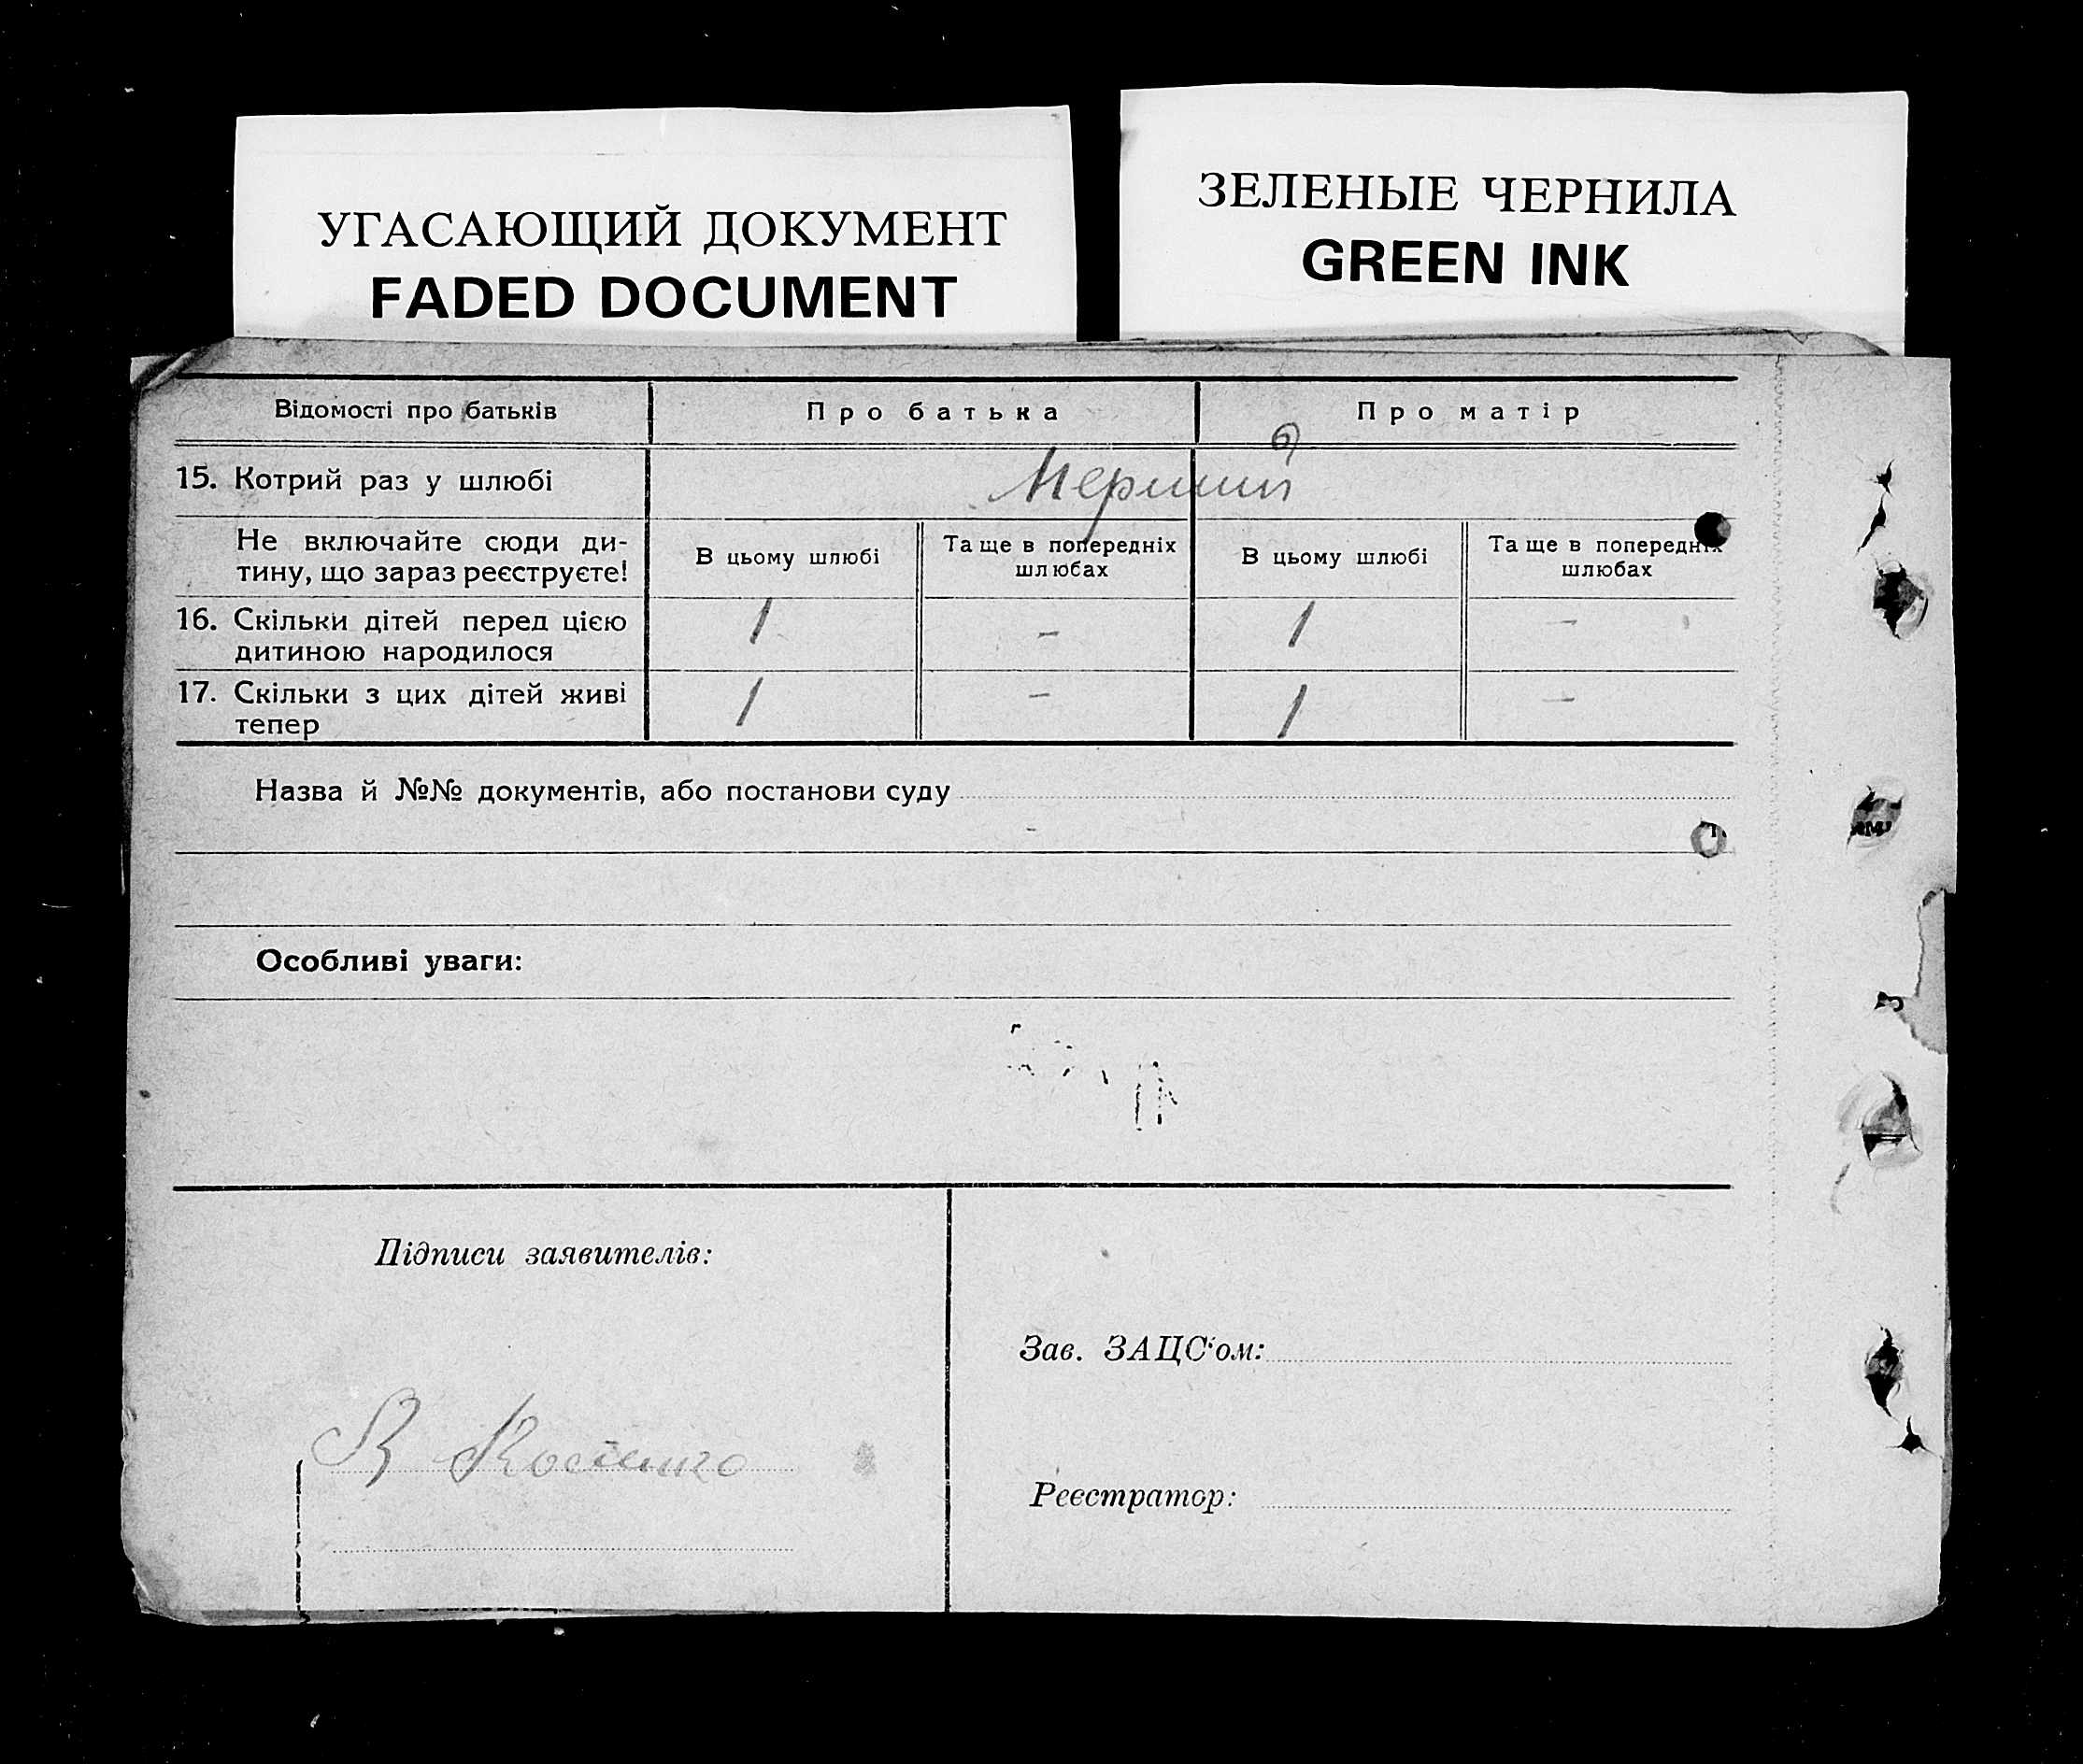 УГАСАЮЩИЙ ДОКУМЕНТ
FADED DOCUMENT
ЗЕЛЕНЫЕ ЧЕРНИЛА
GREEN INK
Відомості про батьків
Про батька
Про матір
15. Котрий раз у шлюбі
Перший
Не включайте сюди ди-
тину, що зараз реєструєте!
В цьому шлюбі
Та ще в попередніх
шлюбах
В цьому шлюбі
Та ще в попередніх
шлюбах
16. Скільки дітей перед цією
дитиною народилося
1 – 1 –
17. Скільки з цих дітей живі
тепер
1 – 1 –
Назва й №№ документів, або постанови суду
Особливі уваги:
Підписи заявителів:
Зав. ЗАЦС‘ом:
Реєстратор: